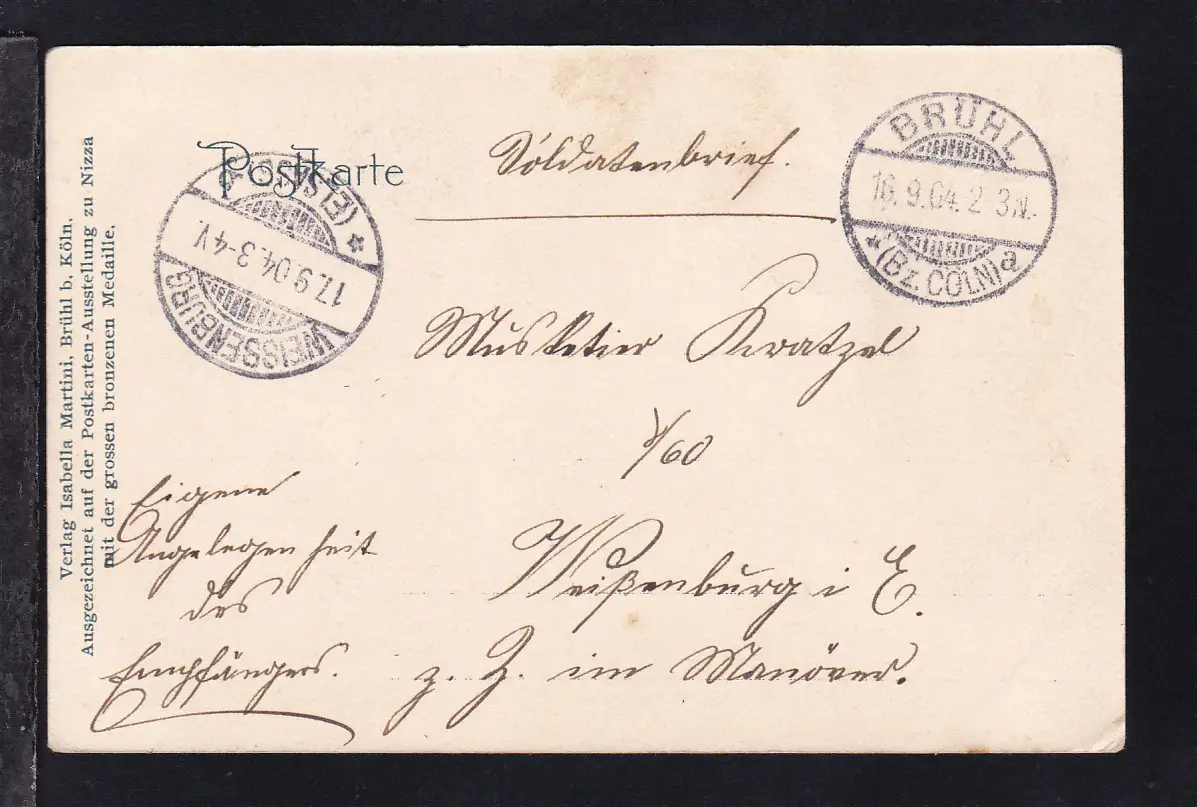 Postkarte
Soldatenbrief.
BRÜHL
16.9.04. 2-3N.
*(Bz. CÖLN) a
WEISSENBURG
17.9.04. 3-4V.
(ELSASS) *
Musketier Kratzel
/60
Weißenburg i E.
z. Z. im Manöver.
Eigene
Angelegenheit
des
Empfängers.
Verlag Isabella Martini, Brühl b. Köln.
Ausgezeichnet auf der Postkarten-Ausstellung zu Nizza
mit der grossen bronzenen Medaille.